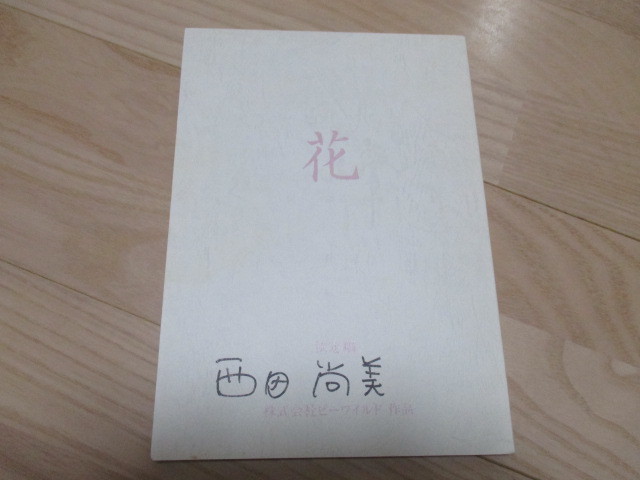 花
決定稿
西田 尚美
株式会社ビーワイルド 作品